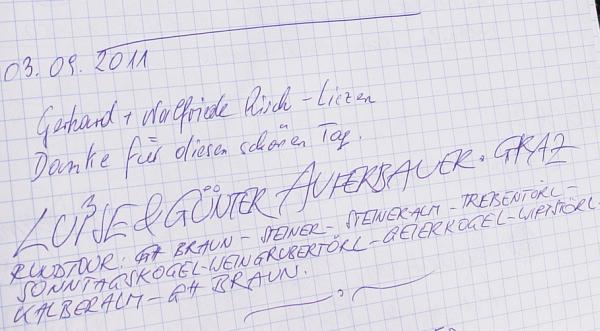 03.09.2011
Gerhard + Walfriede Risch - Liezen
Danke für diesen schönen Tag.
LUISE & GÜNTER AUFERBAUER. GRAZ
RUNDTOUR: GH BRAUN - STEINER - STEINERALM - TREBENTÖRL -
SONNTAGSKOGEL - WEINGRUBERTÖRL - GEIERKOGEL -
KALBERALM - GH BRAUN.